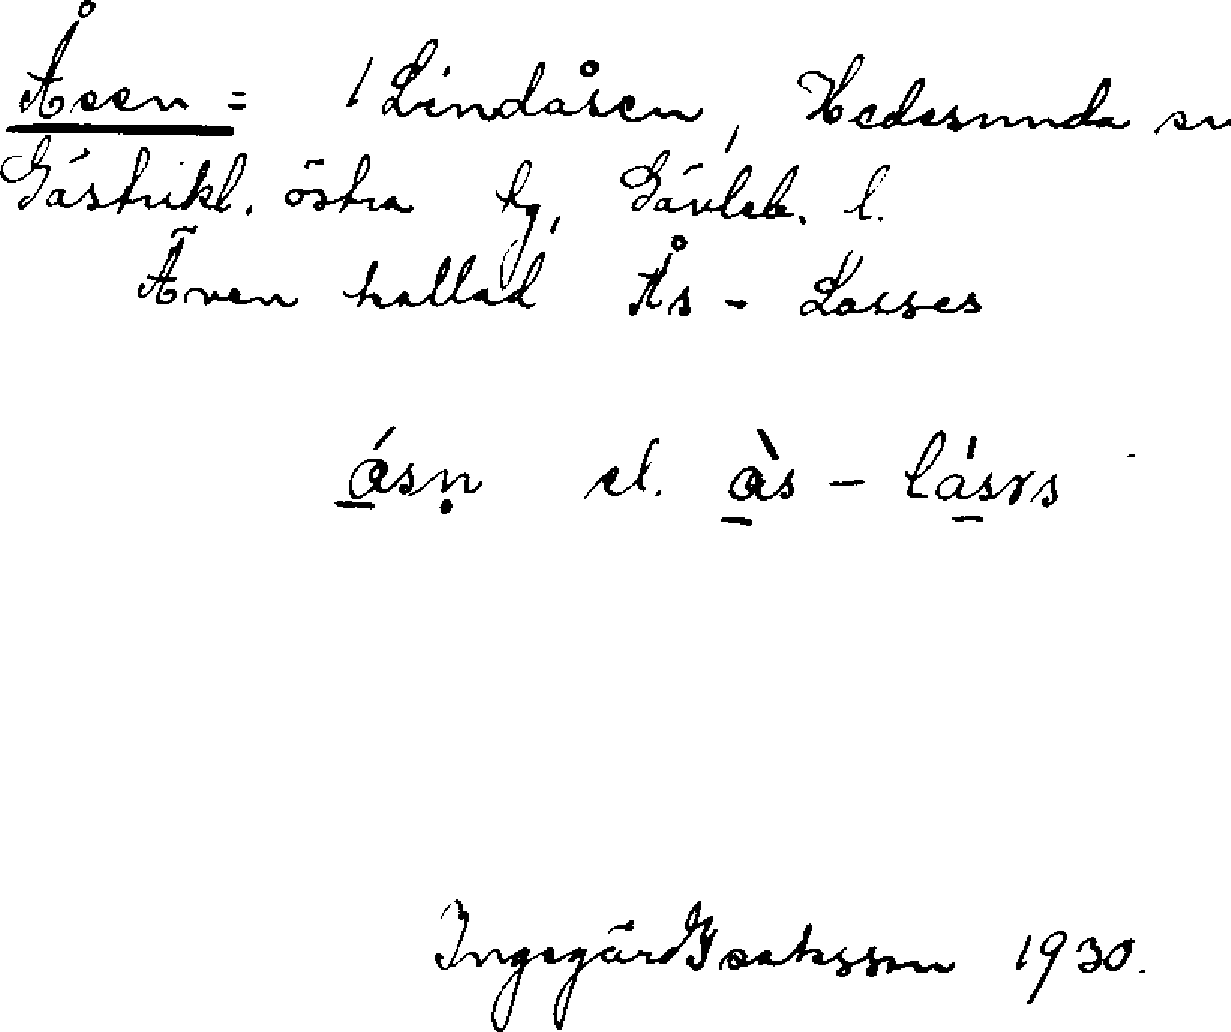 Åsen = / Lindåsen, Hedesunda sn
Gästrikl. östra tg, Gävleb. l.
Även kallad Ås - Lasses
ásṇ el. às - lásɤs
Ingegärd Isaksson 1930.